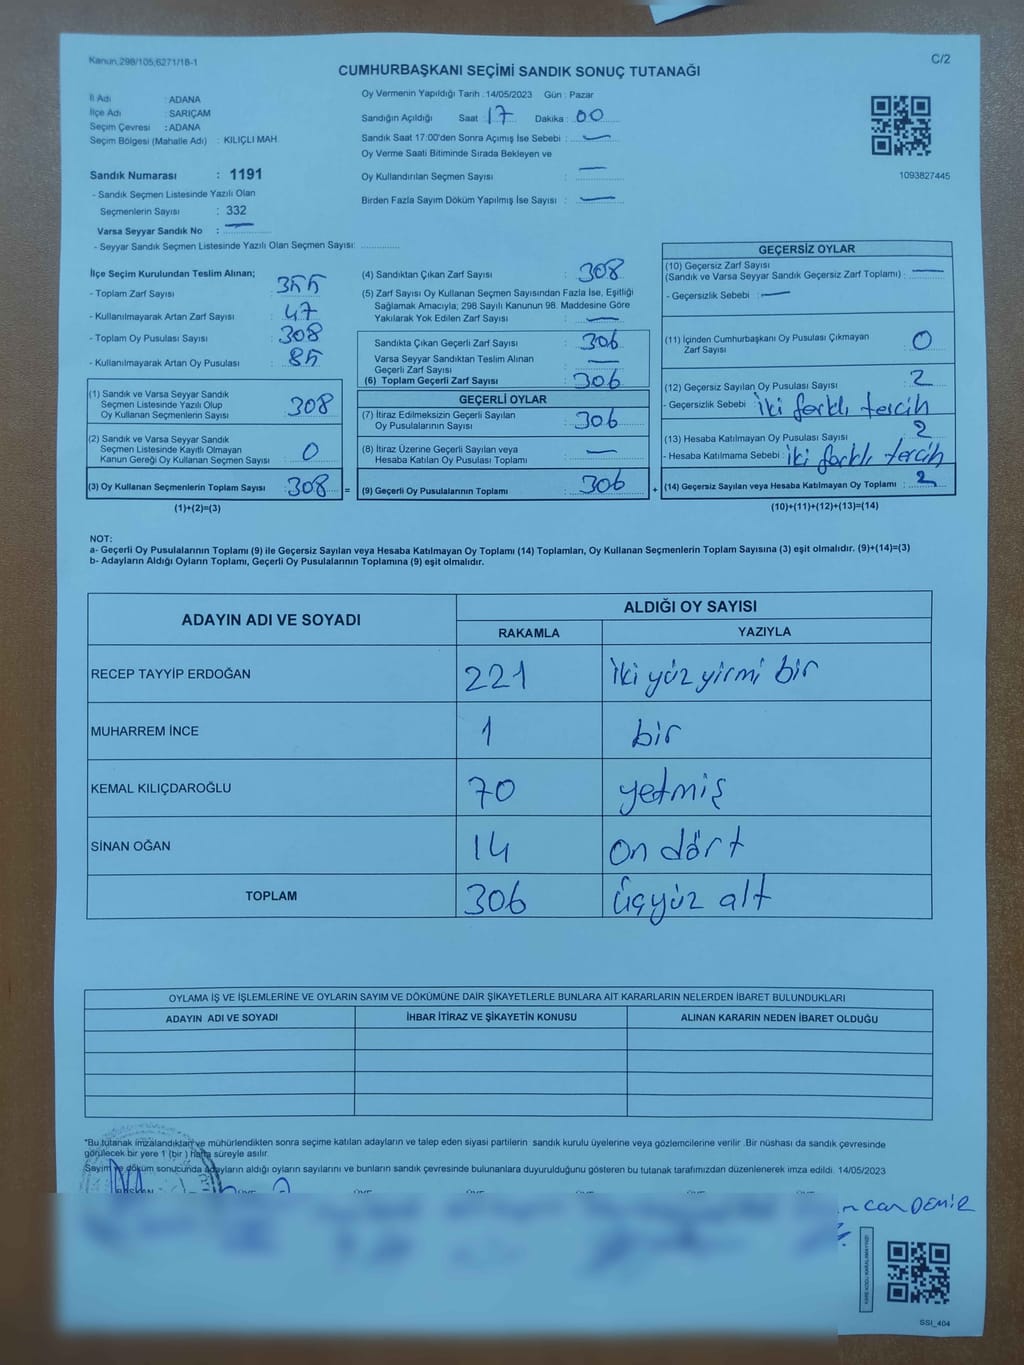 Kanun.298/105;6271/18-1
C/2
CUMHURBAŞKANI SEÇİMİ SANDIK SONUÇ TUTANAĞI
İl Adı : ADANA
İlçe Adı : SARIÇAM
Seçim Çevresi : ADANA
Seçim Bölgesi (Mahalle Adı) : KILIÇLI MAH
Sandık Numarası : 1191
- Sandık Seçmen Listesinde Yazılı Olan
Seçmenlerin Sayısı : 332
Varsa Seyyar Sandık No : —
- Seyyar Sandık Seçmen Listesinde Yazılı Olan Seçmen Sayısı: ............
Oy Vermenin Yapıldığı Tarih : 14/05/2023 Gün : Pazar
Sandığın Açıldığı Saat : 17 Dakika : 00
Sandık Saat 17:00'den Sonra Açılmış İse Sebebi : —
Oy Verme Saati Bitiminde Sırada Bekleyen ve
Oy Kullandırılan Seçmen Sayısı : —
Birden Fazla Sayım Döküm Yapılmış İse Sayısı : —
1093827445
İlçe Seçim Kurulundan Teslim Alınan;
- Toplam Zarf Sayısı : 355
- Kullanılmayarak Artan Zarf Sayısı : 47
- Toplam Oy Pusulası Sayısı : 308
- Kullanılmayarak Artan Oy Pusulası : 85
(1) Sandık ve Varsa Seyyar Sandık
Seçmen Listesinde Yazılı Olup
Oy Kullanan Seçmenlerin Sayısı : 308
(2) Sandık ve Varsa Seyyar Sandık
Seçmen Listesinde Kayıtlı Olmayan
Kanun Gereği Oy Kullanan Seçmen Sayısı : 0
(3) Oy Kullanan Seçmenlerin Toplam Sayısı : 308 =
(1)+(2)=(3)
(4) Sandıktan Çıkan Zarf Sayısı : 308
(5) Zarf Sayısı Oy Kullanan Seçmen Sayısından Fazla İse, Eşitliği
Sağlamak Amacıyla; 298 Sayılı Kanunun 98. Maddesine Göre
Yakılarak Yok Edilen Zarf Sayısı : —
Sandıkta Çıkan Geçerli Zarf Sayısı : 306
Varsa Seyyar Sandıktan Teslim Alınan
Geçerli Zarf Sayısı : —
(6) Toplam Geçerli Zarf Sayısı : 306
GEÇERLİ OYLAR
(7) İtiraz Edilmeksizin Geçerli Sayılan
Oy Pusulalarının Sayısı : 306
(8) İtiraz Üzerine Geçerli Sayılan veya
Hesaba Katılan Oy Pusulası Toplamı : —
(9) Geçerli Oy Pusulalarının Toplamı : 306 +
GEÇERSİZ OYLAR
(10) Geçersiz Zarf Sayısı
(Sandık ve Varsa Seyyar Sandık Geçersiz Zarf Toplamı) : —
- Geçersizlik Sebebi : —
(11) İçinden Cumhurbaşkanı Oy Pusulası Çıkmayan
Zarf Sayısı : 0
(12) Geçersiz Sayılan Oy Pusulası Sayısı : 2
- Geçersizlik Sebebi : İki farklı tercih
(13) Hesaba Katılmayan Oy Pusulası Sayısı : 2
- Hesaba Katılmama Sebebi : İki farklı tercih
(14) Geçersiz Sayılan veya Hesaba Katılmayan Oy Toplamı : 2
(10)+(11)+(12)+(13)=(14)
NOT:
a- Geçerli Oy Pusulalarının Toplamı (9) ile Geçersiz Sayılan veya Hesaba Katılmayan Oy Toplamı (14) Toplamları, Oy Kullanan Seçmenlerin Toplam Sayısına (3) eşit olmalıdır. (9)+(14)=(3)
b- Adayların Aldığı Oyların Toplamı, Geçerli Oy Pusulalarının Toplamına (9) eşit olmalıdır.
ADAYIN ADI VE SOYADI ALDIĞI OY SAYISI
RAKAMLA YAZIYLA
RECEP TAYYİP ERDOĞAN 221 İki yüz yirmi bir
MUHARREM İNCE 1 bir
KEMAL KILIÇDAROĞLU 70 yetmiş
SİNAN OĞAN 14 on dört
TOPLAM 306 üçyüz alt
OYLAMA İŞ VE İŞLEMLERİNE VE OYLARIN SAYIM VE DÖKÜMÜNE DAİR ŞİKAYETLERLE BUNLARA AİT KARARLARIN NELERDEN İBARET BULUNDUKLARI
ADAYIN ADI VE SOYADI İHBAR İTİRAZ VE ŞİKAYETİN KONUSU ALINAN KARARIN NEDEN İBARET OLDUĞU
"Bu tutanak imzalandıktan ve mühürlendikten sonra seçime katılan adayların ve talep eden siyasi partilerin sandık kurulu üyelerine veya gözlemcilerine verilir .Bir nüshası da sandık çevresinde
görülecek bir yere 1 (bir ) hafta süreyle asılır.
Sayım ve döküm sonucunda adayların aldığı oyların sayılarını ve bunların sandık çevresinde bulunanlara duyurulduğunu gösteren bu tutanak tarafımızdan düzenlenerek imza edildi. 14/05/2023
BAŞKAN
can DEMİR
SSI_404